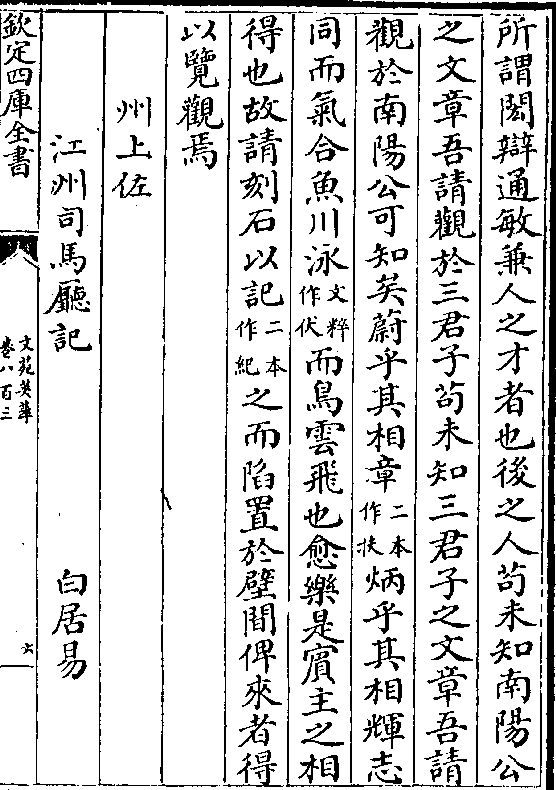 所謂閎辯通敏兼人之才者也後之人茍未知南陽公
之文章吾請觀於三君子茍未知三君子之文章吾請
觀於南陽公可知矣蔚乎其相章二本作扶炳乎其相輝志
同而氣合魚川泳文粹作伏而鳥雲飛也愈樂是賓主之相
得也故請刻石以記二本作紀之而陷置於壁間俾來者得
以覽觀焉
州上佐
江州司馬廳記 白居易
欽定四庫全書
文苑英華
卷八百三
六